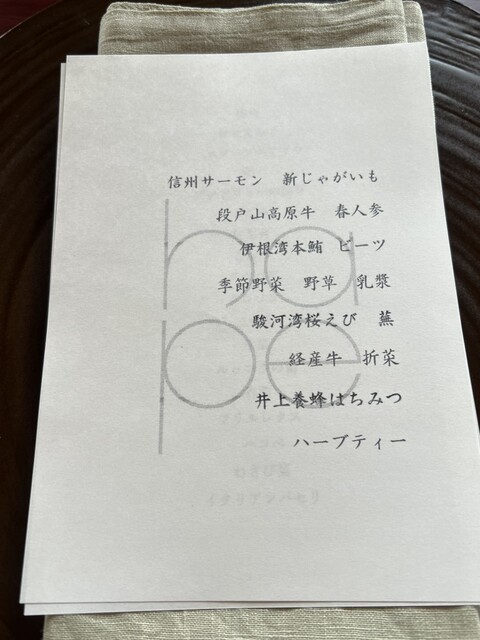 信州サーモン 新じゃがいも
段戸山高原牛 春人参
伊根湾本鮪 ビーツ
季節野菜 野草 乳漿
駿河湾桜えび 蕪
経産牛 折菜
井上養蜂はちみつ
ハーブティー
ha
pe